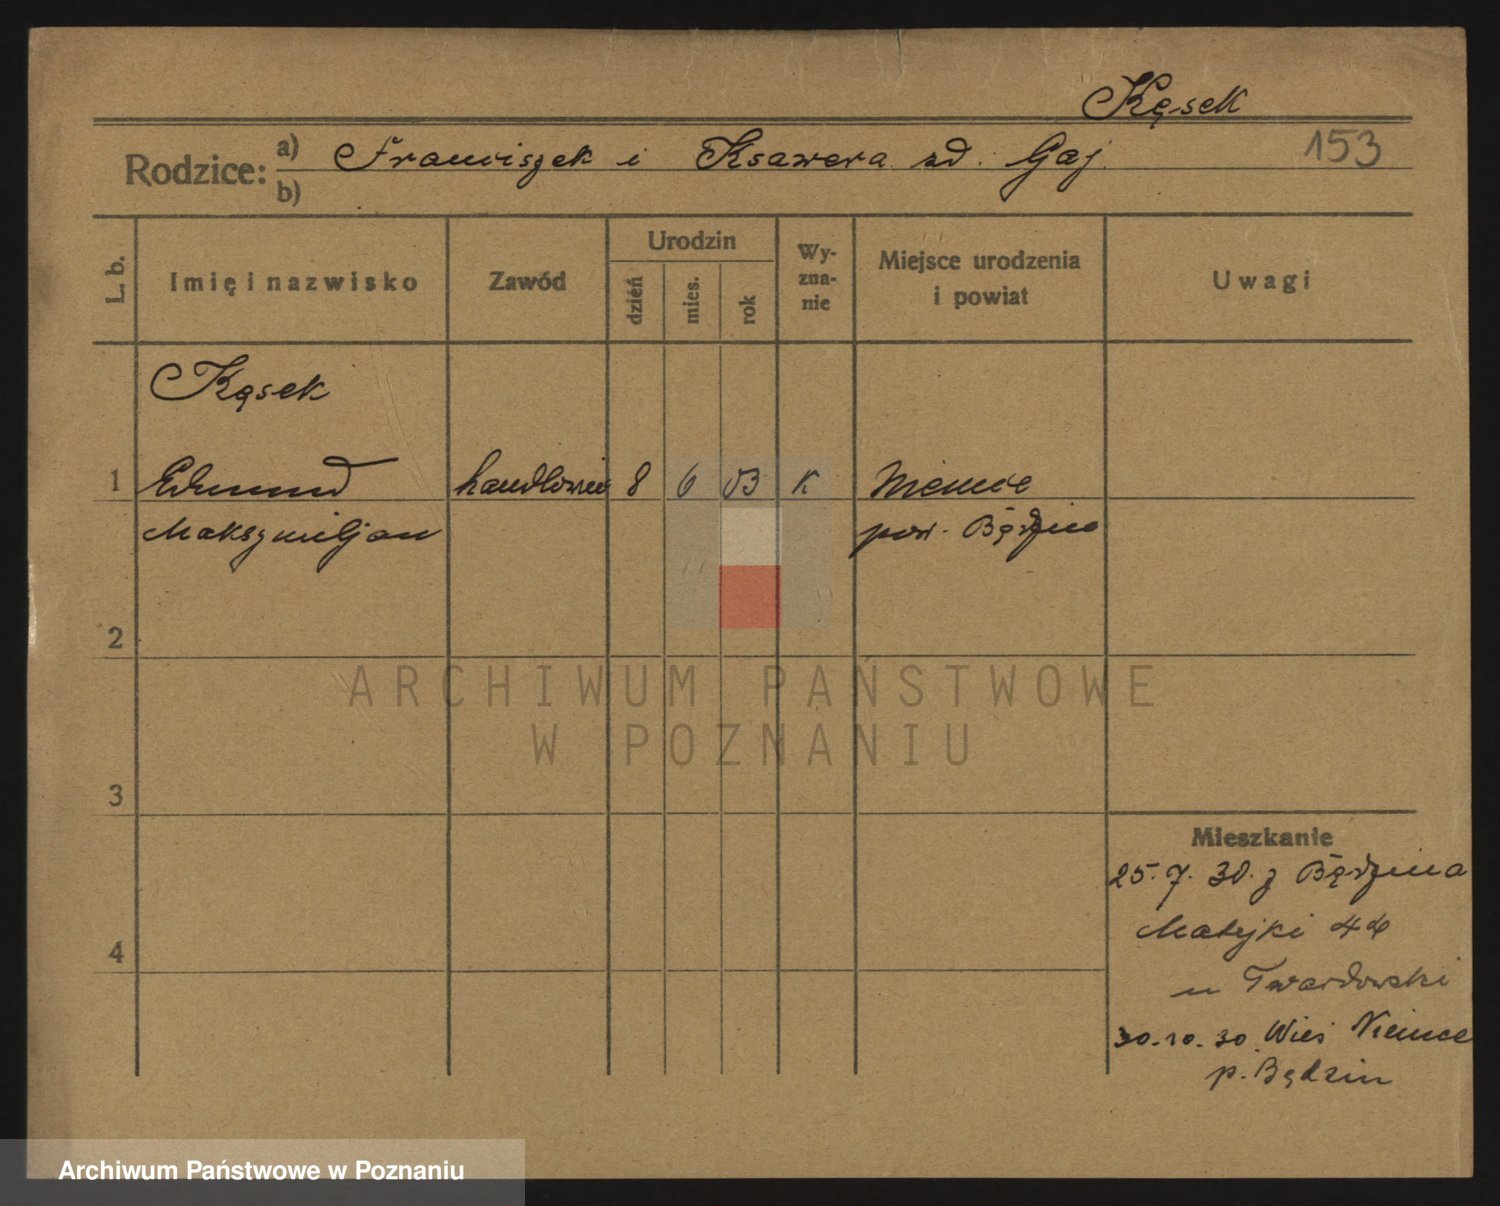 Kęsek
153
Rodzice: a) Franciszek i Ksawera zd. Gaj.
b)
L. b. Imię i nazwisko Zawód Urodzin Wy-zna-nie Miejsce urodzenia i powiat Uwagi
dzień mies. rok
Kęsek
1 Edmund handlowiec 8 6 03 k Niemce
Maksymiljan pow. Będzin
2
ARCHIWUM PAŃSTWOWE
W POZNANIU
3
Mieszkanie
25.7.30. z Będzina
Matejki 44
4
u Twardowski
30.10.30 Wieś Niemce
p. Będzin
Archiwum Państwowe w Poznaniu